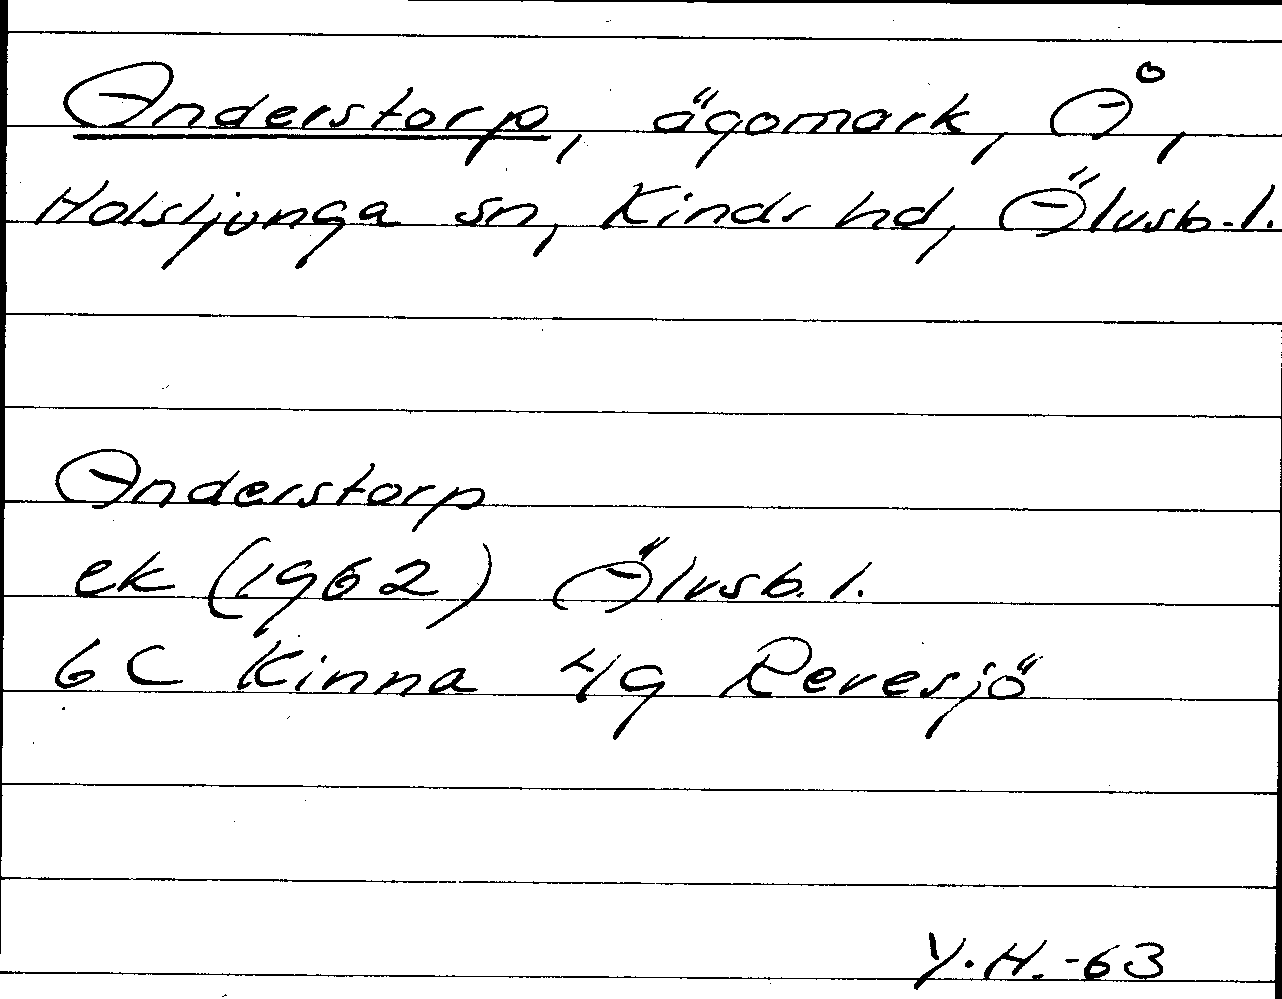 Anderstorp, ägomark, Å,
Holsljunga sn, Kinds hd, Älvsb.l.
Anderstorp
ek (1962) Älvsb. l.
6C Kinna 4g Reresjö
Y.H.-63